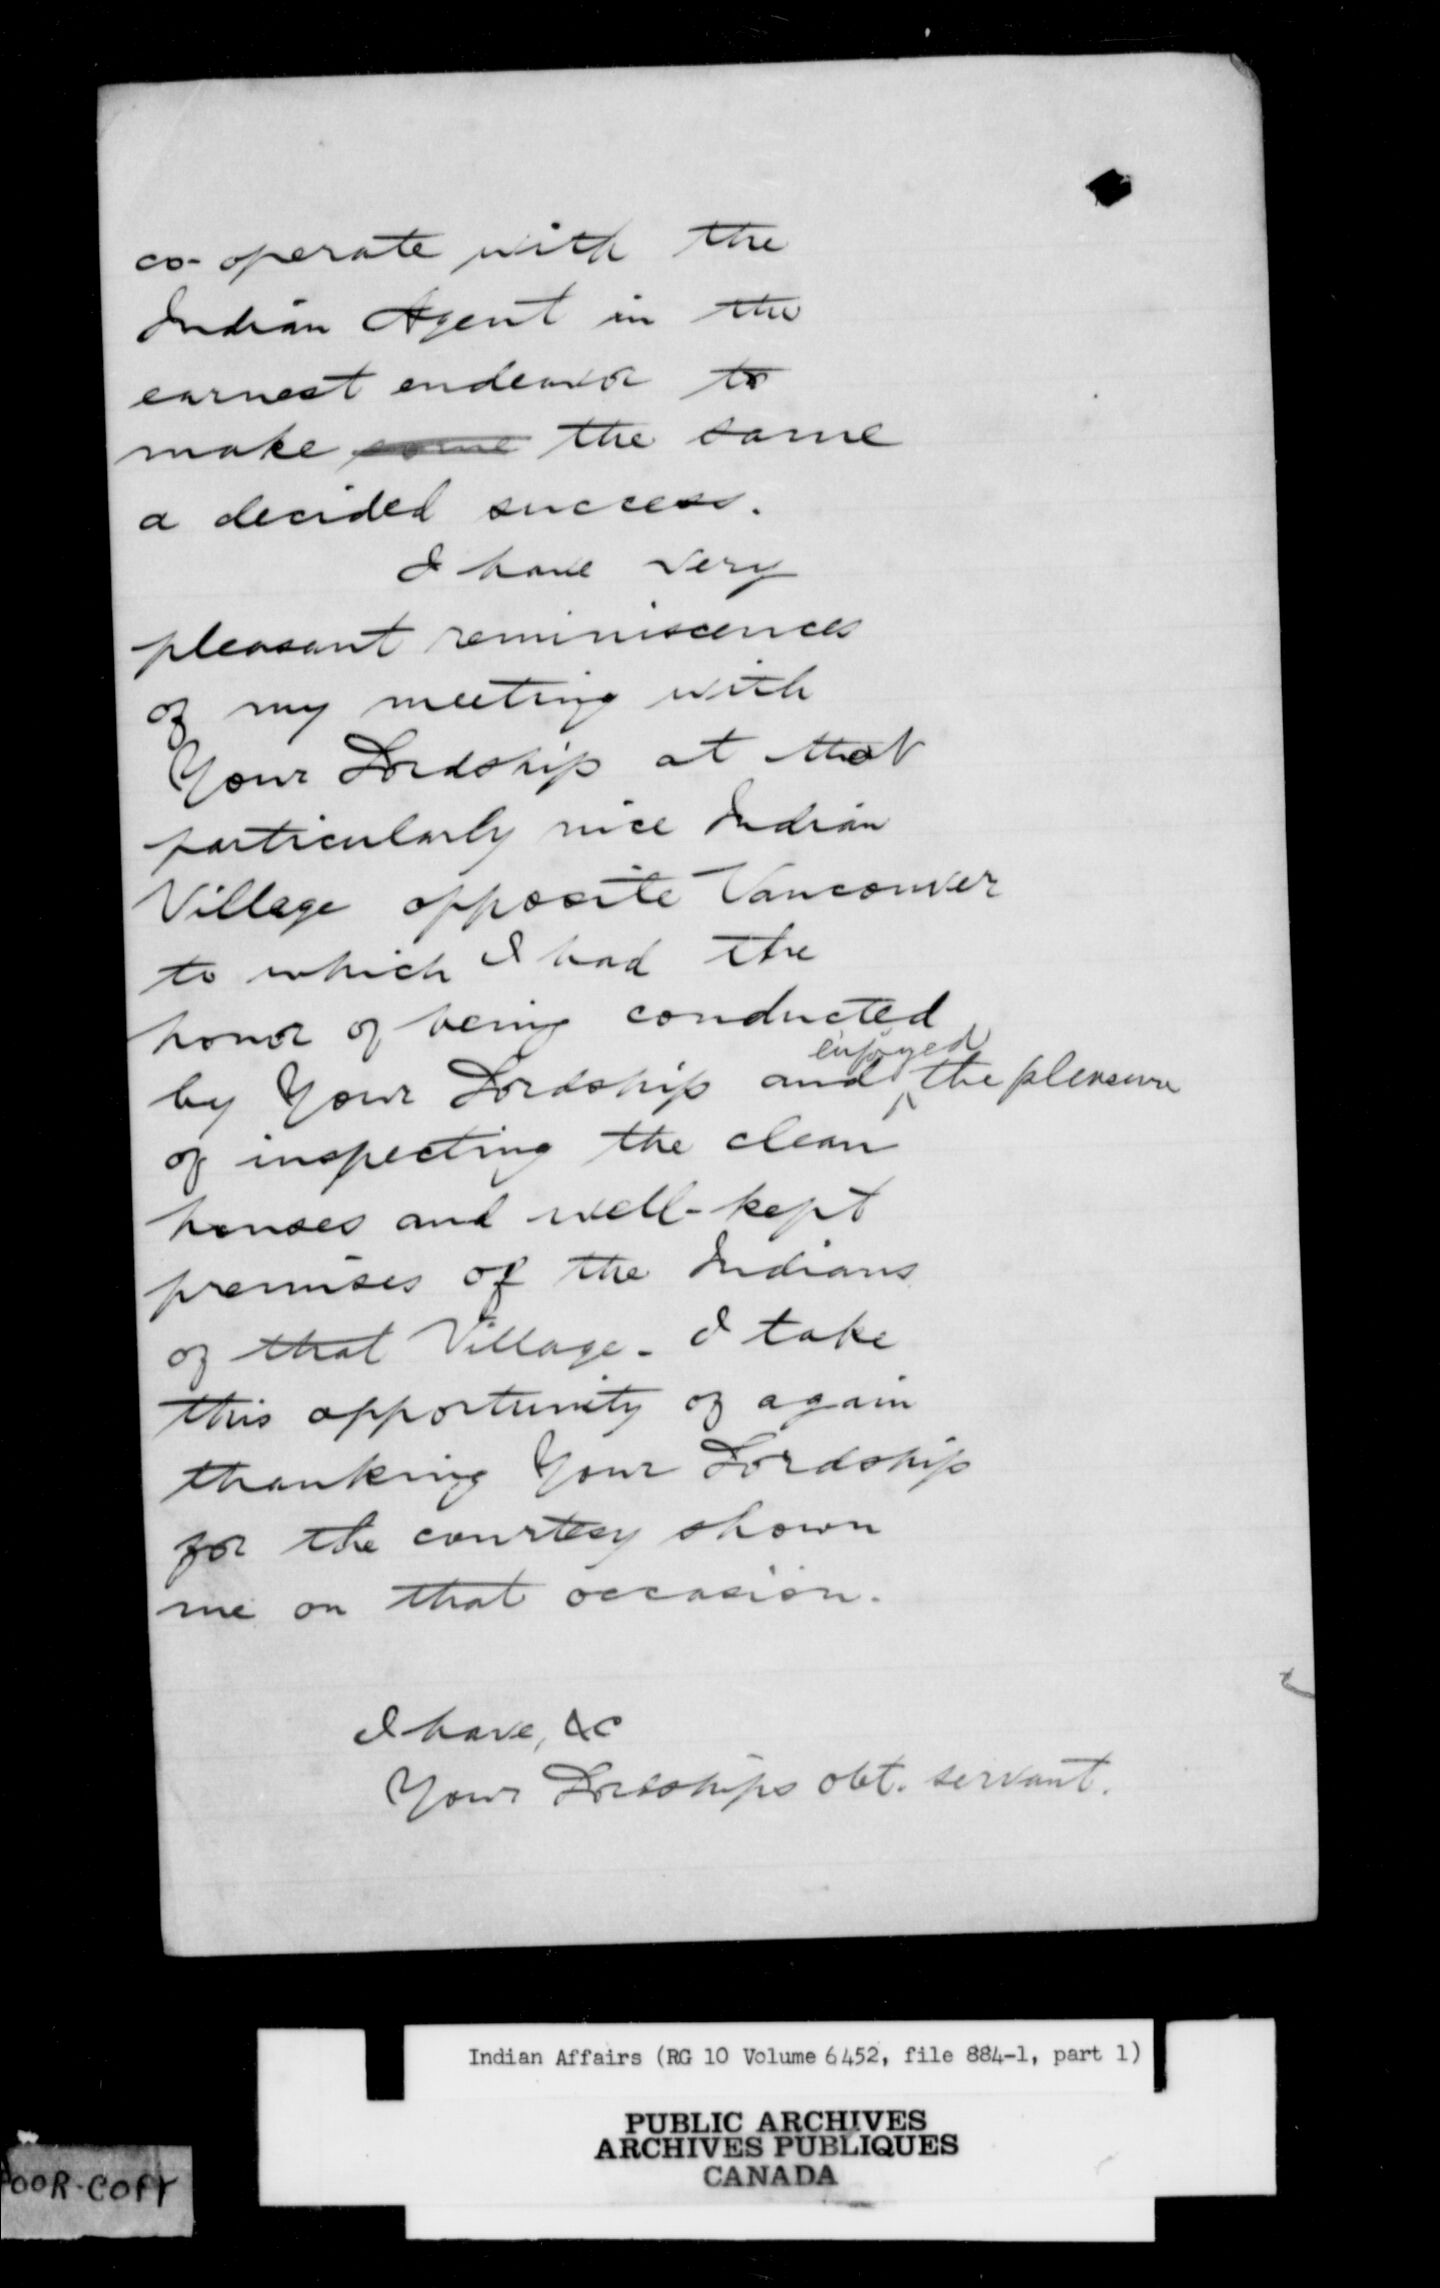 co-operate with the
Indian Agent in the
earnest endeavor to
make some the same
a decided success.
I have very
pleasant reminiscences
of my meeting with
Your Lordship at that
particularly nice Indian
Village opposite Vancouver
to which I had the
honor of being conducted
enjoyed
by Your Lordship and ^ the pleasure
of inspecting the clean
houses and well-kept
premises of the Indians
of that Village. I take
this opportunity of again
thanking Your Lordship
for the courtesy shown
me on that occasion.
I have, &c
Your Lordships obt. servant.
Indian Affairs (RG 10 Volume 6452, file 884-1, part 1)
PUBLIC ARCHIVES
ARCHIVES PUBLIQUES
CANADA
POOR-COPY